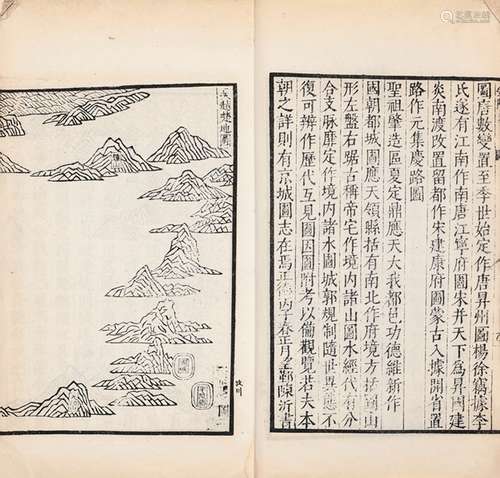 圖唐數變置至季世始定作唐昇州圖楊徐竊據李
氏遂有江南作南唐江寧府圖宋并天下爲昇國建
炎南渡改置留都作宋建康府圖蒙古入據開省置
路作元集慶路圖
聖祖肇造區夏定鼎應天大我都邑功德維新作
國朝都城圖應天領縣括有南北作府境方括圖山
形左盤右踞古稱帝宅作境内諸山圖水經代有分
合支脉靡定作境内諸水圖城郭規制隨世異態不
復可辨作歷代互見圖因圖附考以備觀覽若夫本
朝之詳則有京城圖志在焉正德丙子春正月望鄞陳沂書
吳越楚地圖